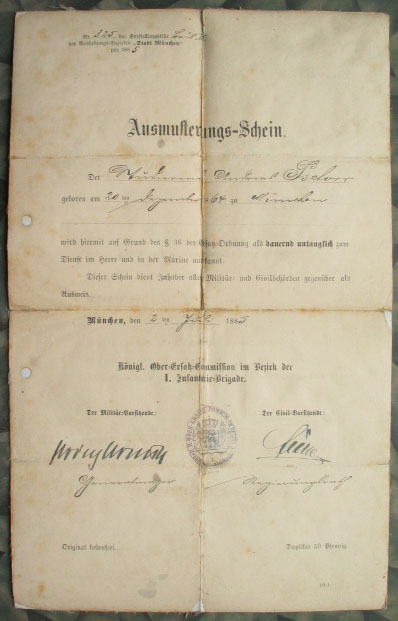 Nr. 225 der Vorstellungsliste
des Aushebungs-Bezirks „Stadt München“
pro 1885
Ausmusterungs-Schein.
Der Studierende Andreas Pschorr
geboren am 20ten Dezember 64 zu München
wird hiermit auf Grund des § 36 der Ersatz-Ordnung als dauernd untauglich zum
Dienst im Heere und in der Marine anerkannt.
Dieser Schein dient Inhaber allen Militär- und Civilbehörden gegenüber als
Ausweis.
München, den 2ten Juli 1885
Königl. Ober-Ersatz-Commission im Bezirk der
I. Infanterie-Brigade.
Der Militär-Vorsitzende: Der Civil-Vorsitzende:
Generalmajor Regierungsrath
Original kostenfrei. Duplikat 50 Pfennig.